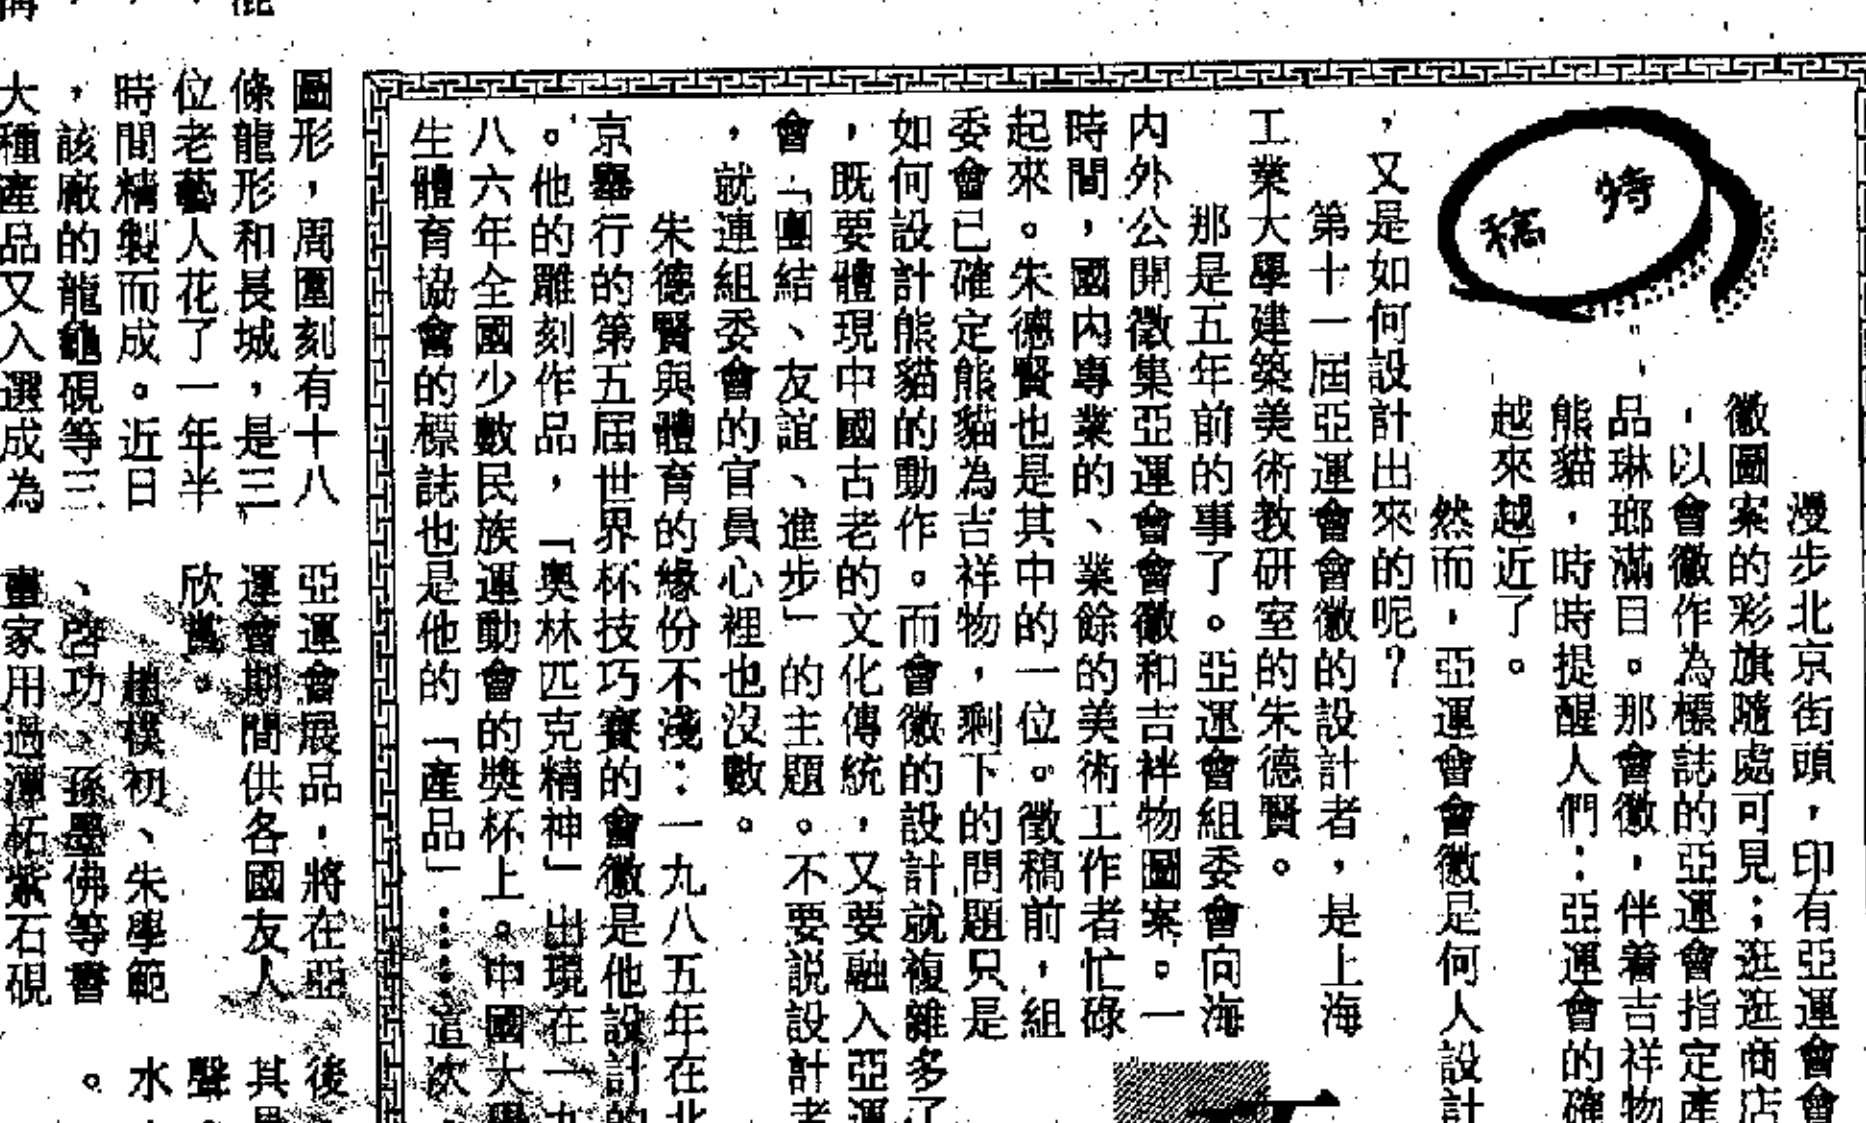 特稿
漫步北京街頭，印有亞運會會
徽圖案的彩旗隨處可見；逛逛商店
，以會徽作為標誌的亞運會指定產
品琳瑯滿目。那會徽，伴着吉祥物
熊貓，時時提醒人們：亞運會的確
越來越近了。
然而，亞運會會徽是何人設計
，又是如何設計出來的呢？
第十一屆亞運會會徽的設計者，是上海
工業大學建築美術教研室的朱德賢。
那是五年前的事了。亞運會組委會向海
內外公開徵集亞運會會徽和吉祥物圖案。一
時間，國內專業的、業餘的美術工作者忙碌
起來。朱德賢也是其中的一位。徵稿前，組
委會已確定熊貓為吉祥物，剩下的問題只是
如何設計熊貓的動作。而會徽的設計就複雜多了
，既要體現中國古老的文化傳統，又要融入亞運
會「團結、友誼、進步」的主題。不要説設計者
，就連組委會的官員心裡也沒數。
朱德賢與體育的緣份不淺：一九八五年在北
京舉行的第五屆世界杯技巧賽的會徽是他設計的
。他的雕刻作品，「奧林匹克精神」出現在一九
八六年全國少數民族運動會的獎杯上。中國大學
生體育協會的標誌也是他的「產品」……這次
圖形，周圍刻有十八
條龍形和長城，是三
位老藝人花了一年半
時間精製而成。近日
，該廠的龍龜硯等三
大種產品又入選成為
亞運會展品，將在亞
運會期間供各國友人
欣賞。
趙樸初、朱學範
、啓功、孫墨佛等書
畫家用過潭柘紫石硯
後
其
聲
水
。